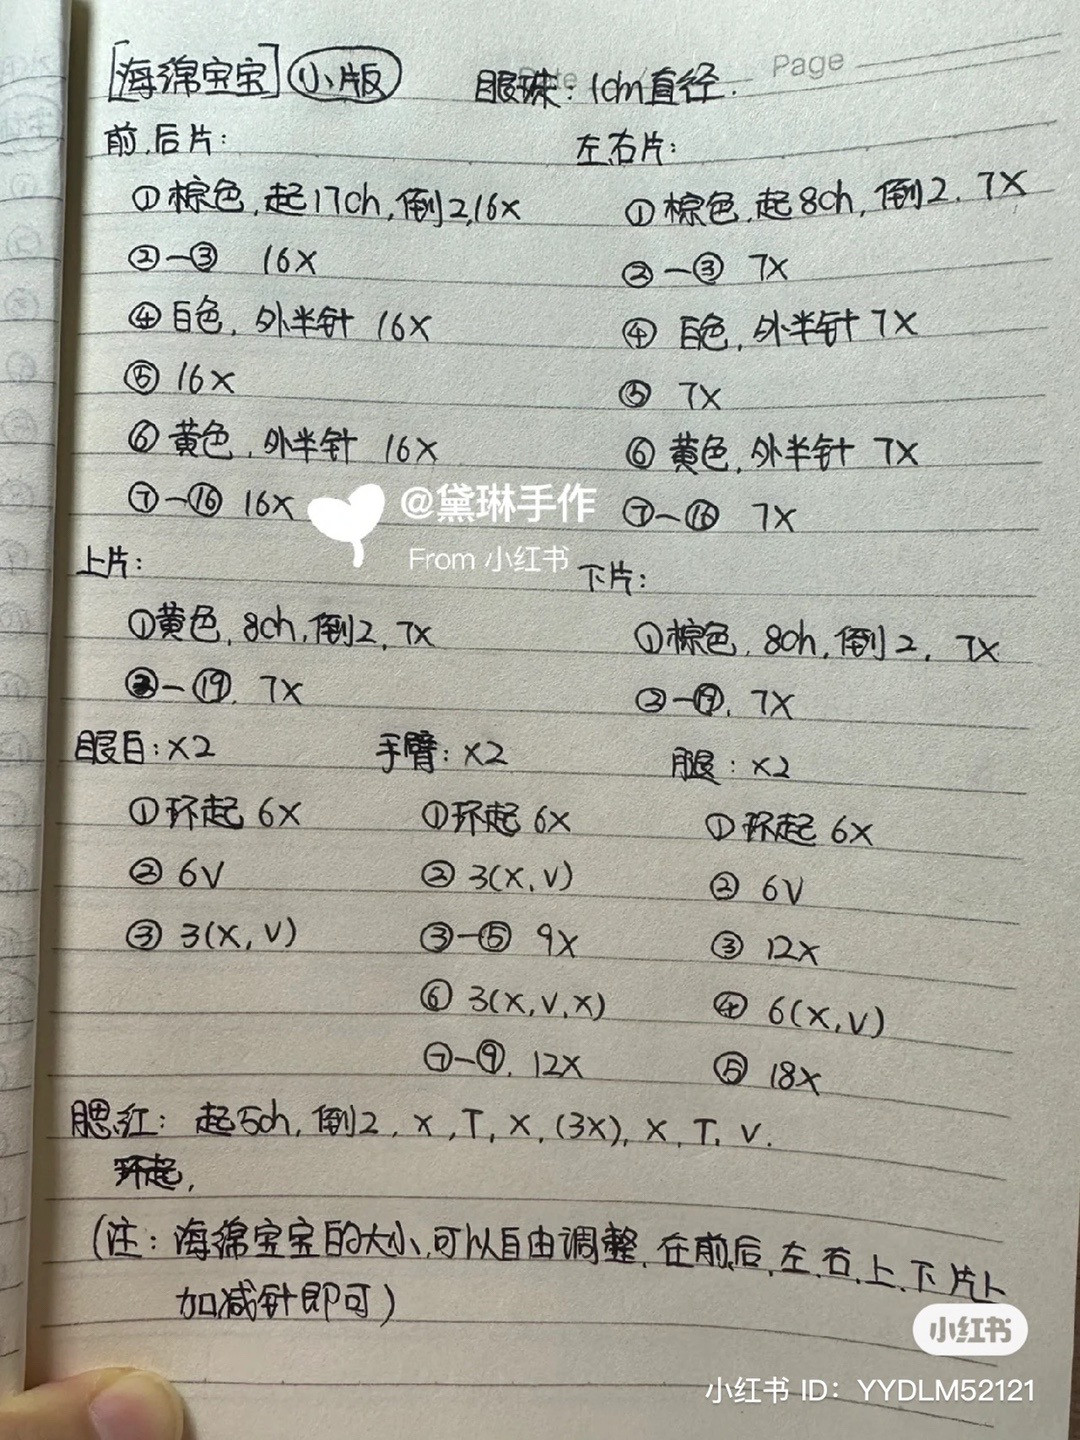 [海绵宝宝] 小版 眼珠：1cm直径.
Date Page
前.后片： 左.右片：
①棕色,起17ch,倒2,16X ①棕色,起8ch,倒2.7X
②—③ 16X ②—③ 7X
④白色,外半针 16X ④白色,外半针7X
⑤16X ⑤ 7X
⑥黄色,外半针 16X ⑥黄色,外半针 7X
⑦—⑯ 16X ⑦—⑯ 7X
@黛琳手作
From 小红书
上片： 下片：
①黄色,8ch,倒2,7X ①棕色,8ch,倒2,7X
②—⑲.7X ②—⑲.7X
眼白：X2 手臂：X2 腿：X2
①环起 6X ①环起 6X ①环起 6X
②6V ②3(X,V) ②6V
③3(X,V) ③—⑤ 9X ③12X
⑥3(X,V,X) ④6(X,V)
⑦—⑨.12X ⑤18X
腮红：起5ch,倒2,X,T,X,(3X),X,T,V.
环起,
(注：海绵宝宝的大小,可以自由调整,在前,后,左,右,上,下片上
加减针即可)
小红书
小红书 ID：YYDLM52121